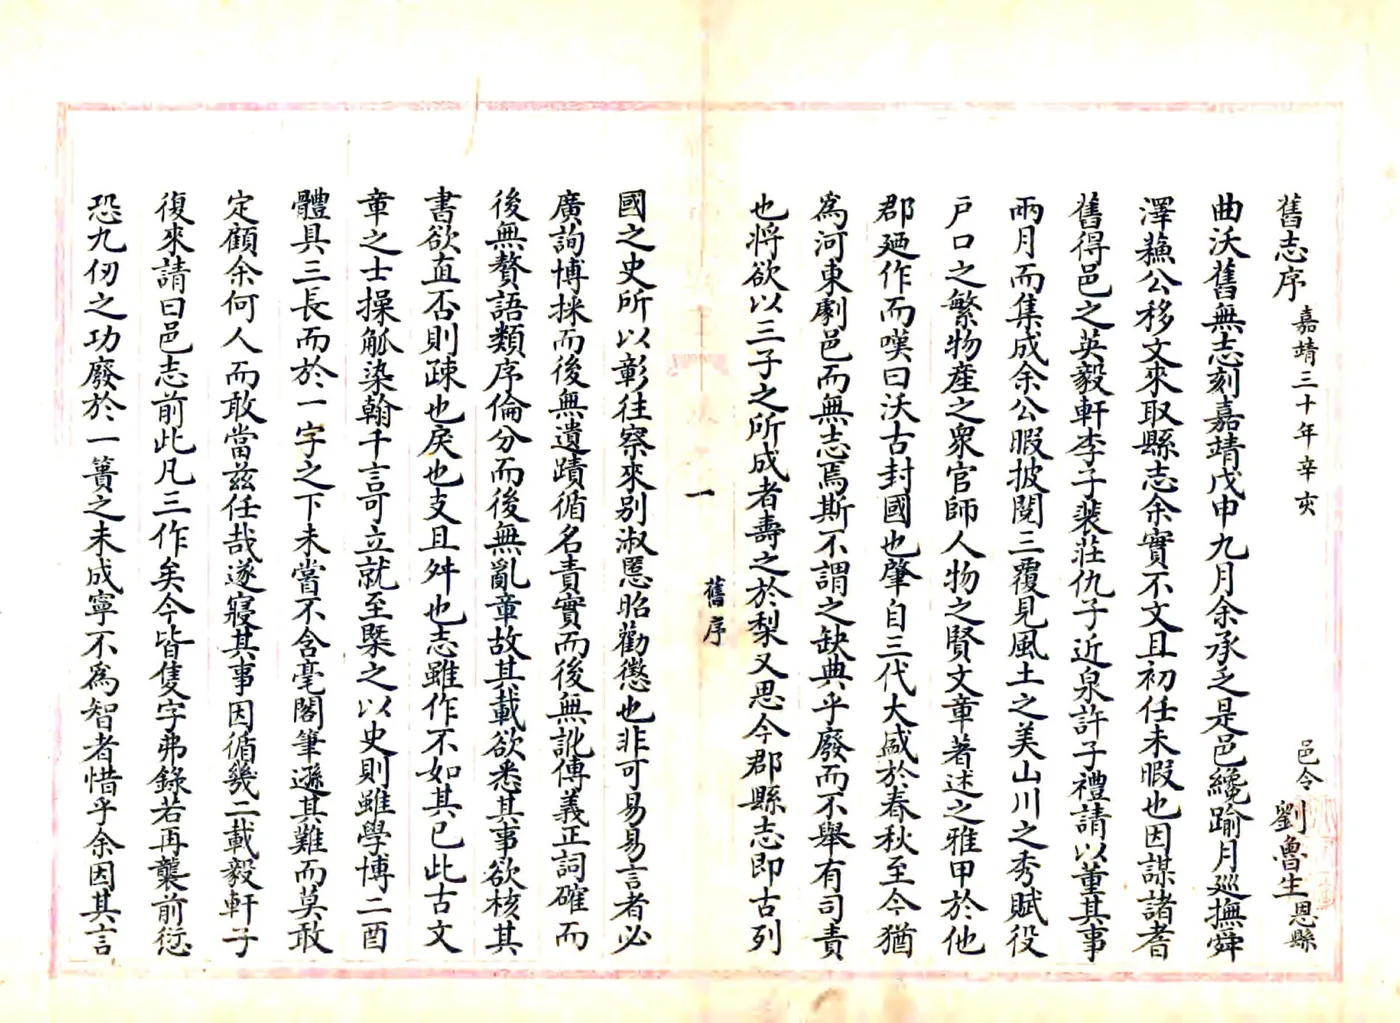 舊志序 嘉靖三十年辛亥 邑令 劉魯生 恩縣
曲沃舊無志刻嘉靖戊申九月余承乏是邑纔踰月巡撫舜
澤蘓公移文來取縣志余實不文且初任未暇也因謀諸耆
舊得邑之英毅軒李子裴莊仇子近泉許子禮請以董其事
兩月而集成余公暇披閱三覆見風土之美山川之秀賦役
戶口之繁物產之衆官師人物之賢文章著述之雅甲於他
郡廼作而嘆曰沃古封國也肇自三代大盛於春秋至今猶
爲河東劇邑而無志焉斯不謂之缺典乎廢而不舉有司責
也將欲以三子之所成者壽之於梨又思今郡縣志即古列
一 舊序
國之史所以彰往察來别淑慝昭勸懲也非可易易言者必
廣詢博採而後無遺蹟循名責實而後無訛傳義正詞確而
後無贅語類序倫分而後無亂章故其載欲悉其事欲核其
書欲直否則疎也戾也支且舛也志雖作不如其已此古文
章之士操觚染翰千言可立就至槩之以史則雖學博二酉
體具三長而於一字之下未嘗不含毫閣筆遜其難而莫敢
定顧余何人而敢當兹任哉遂寢其事因循幾二載毅軒子
復來請曰邑志前此凡三作矣今皆隻字弗錄若再襲前愆
恐九仞之功廢於一簣之未成寧不爲智者惜乎余因其言